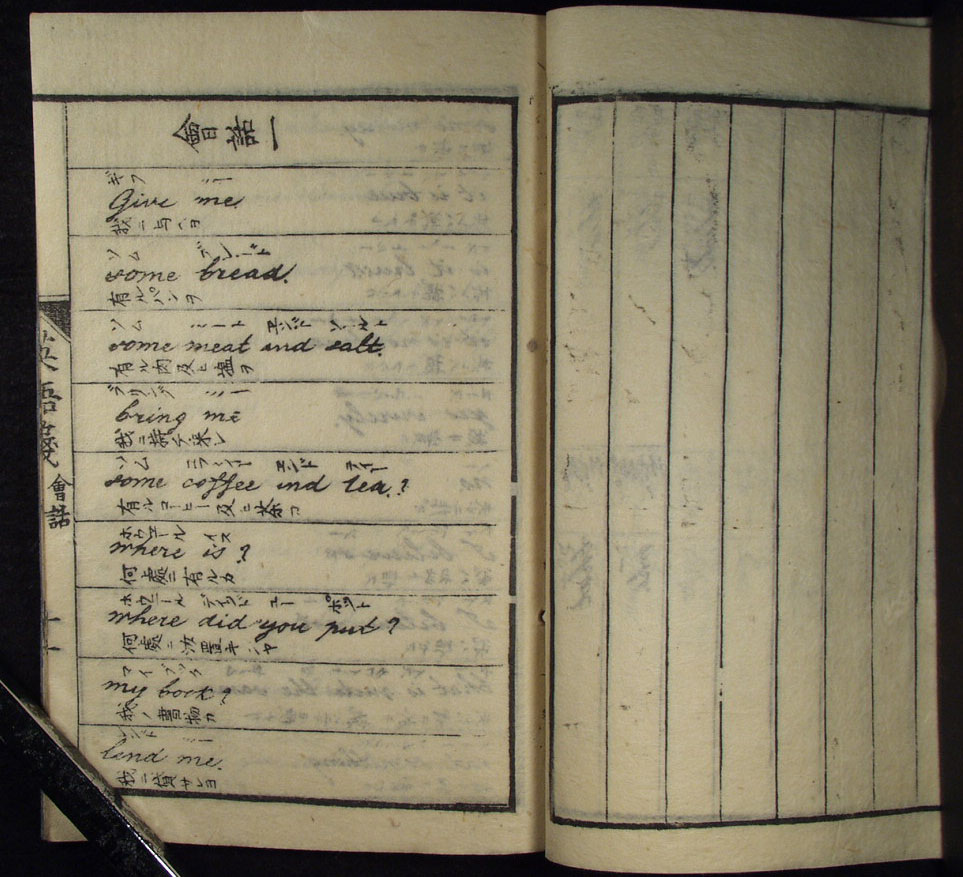 會話一
ギフ ミー
Give me
我ニ与ヘヨ
ソム ブレード
some bread.
有ルパンヲ
ソム ミート エンド ソルト
some meat and salt.
有ル肉及ヒ塩ヲ
ブリング ミー
bring me
我ニ持テ来レ
ソム エンド ティー
some coffee and tea.?
有ルコーヒー及ヒ茶ヲ
ホウエール イス
where is?
何處ニ有ルカ
ホウエール ディド ユー ポット
where did you put?
何處ニ汝置キシヤ
マイ ブック
my book?
我ノ書物カ
レンド ミー
lend me.
我ニ貸サレヨ
會話